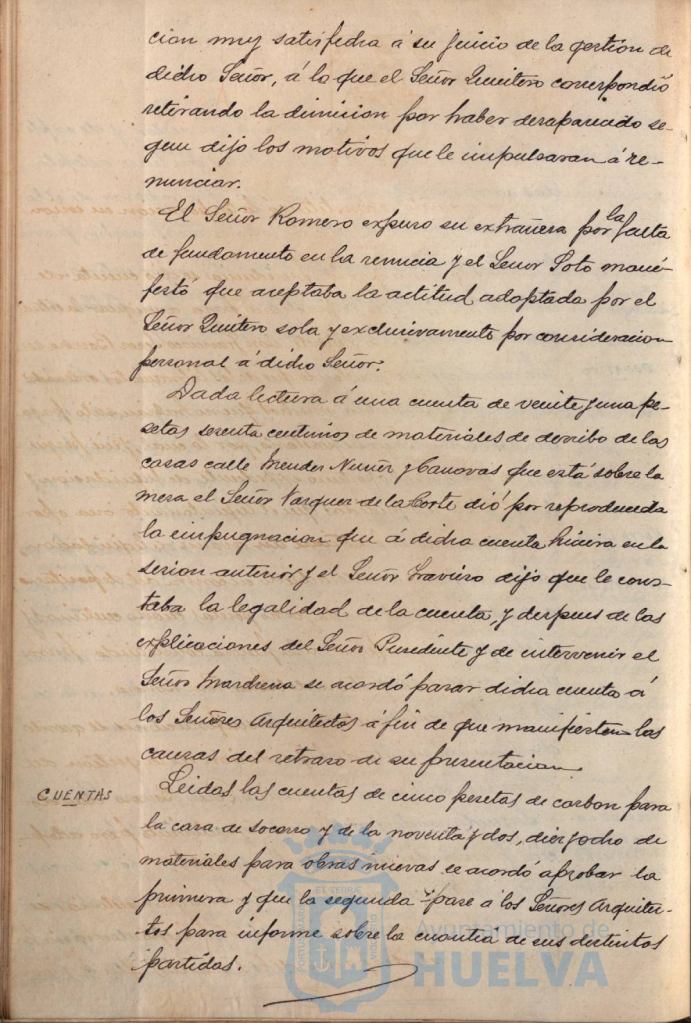 cion muy satisfecha á su juicio de la gestion de
dicho Señor, á lo que el Señor Quintero correspondió
retirando la dimision por haber desaparecido se-
gun dijo los motivos que le impulsaran á re-
nunciar.
El Señor Romero expuso su extrañeza por la falta
de fundamento en la renuncia y el Señor Soto mani-
festó que aceptaba la actitud adoptada por el
Señor Quintero sola y exclusivamente por consideracion
personal á dicho Señor.
Dada lectura á una cuenta de veinte y una pe-
setas sesenta centimos de materiales de derribo de las
casas calle Mendez Nuñez y Canovas que está sobre la
mesa el Señor Vazquez de la Corte dió por reproducida
la impugnacion que á dicha cuenta hiciera en la
sesion anterior y el Señor Traviero dijo que le cons-
taba la legalidad de la cuenta, y despues de las
explicaciones del Señor Presidente y de intervenir el
Señor Marchena se acordó pasar dicha cuenta á
los Señores Arquitectos á fin de que manifiesten las
causas del retraso de su presentacion
CUENTAS
Leidas las cuentas de cinco pesetas de carbon para
la casa de socorro y de la noventa y dos, diez y ocho de
materiales para obras nuevas se acordó aprobar la
primera y que la segunda pase á los Señores Arquitec-
tos para informe sobre la cuantia de sus distintas
partidas.
Ayuntamiento de
HUELVA